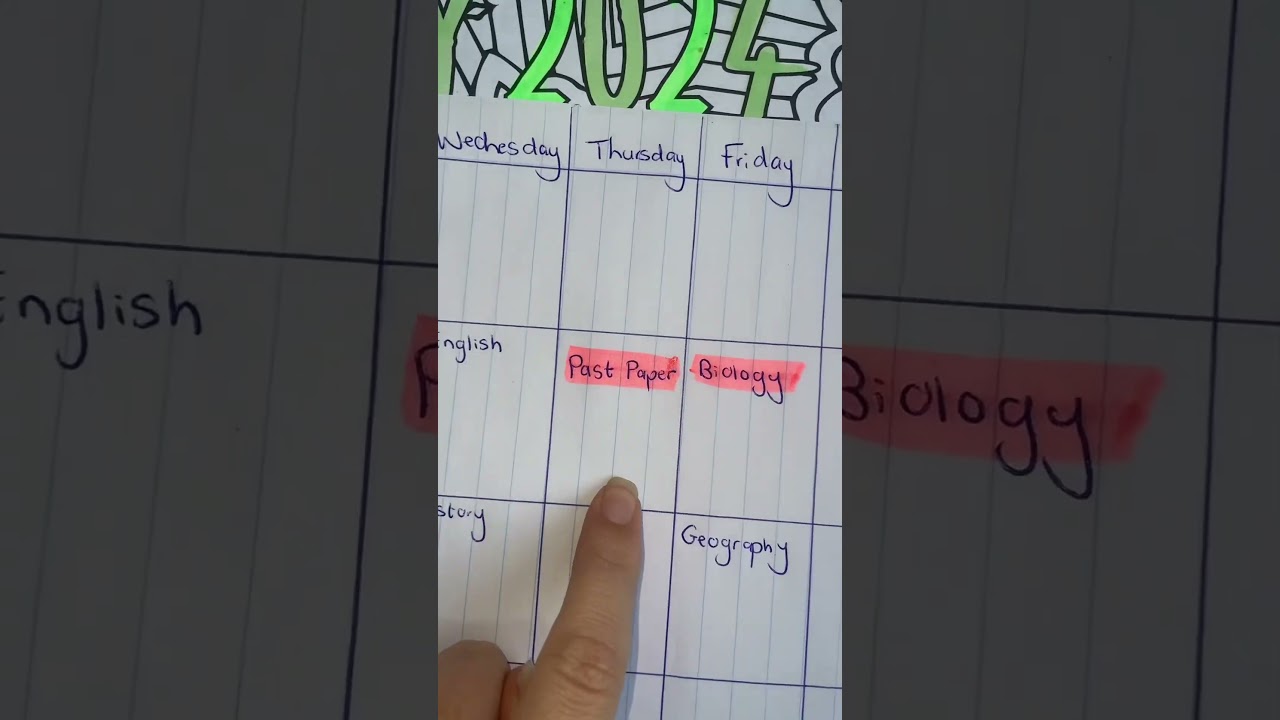 2024
Wednesday Thursday Friday
nglish Past Paper Biology
story Geography
English
Biology